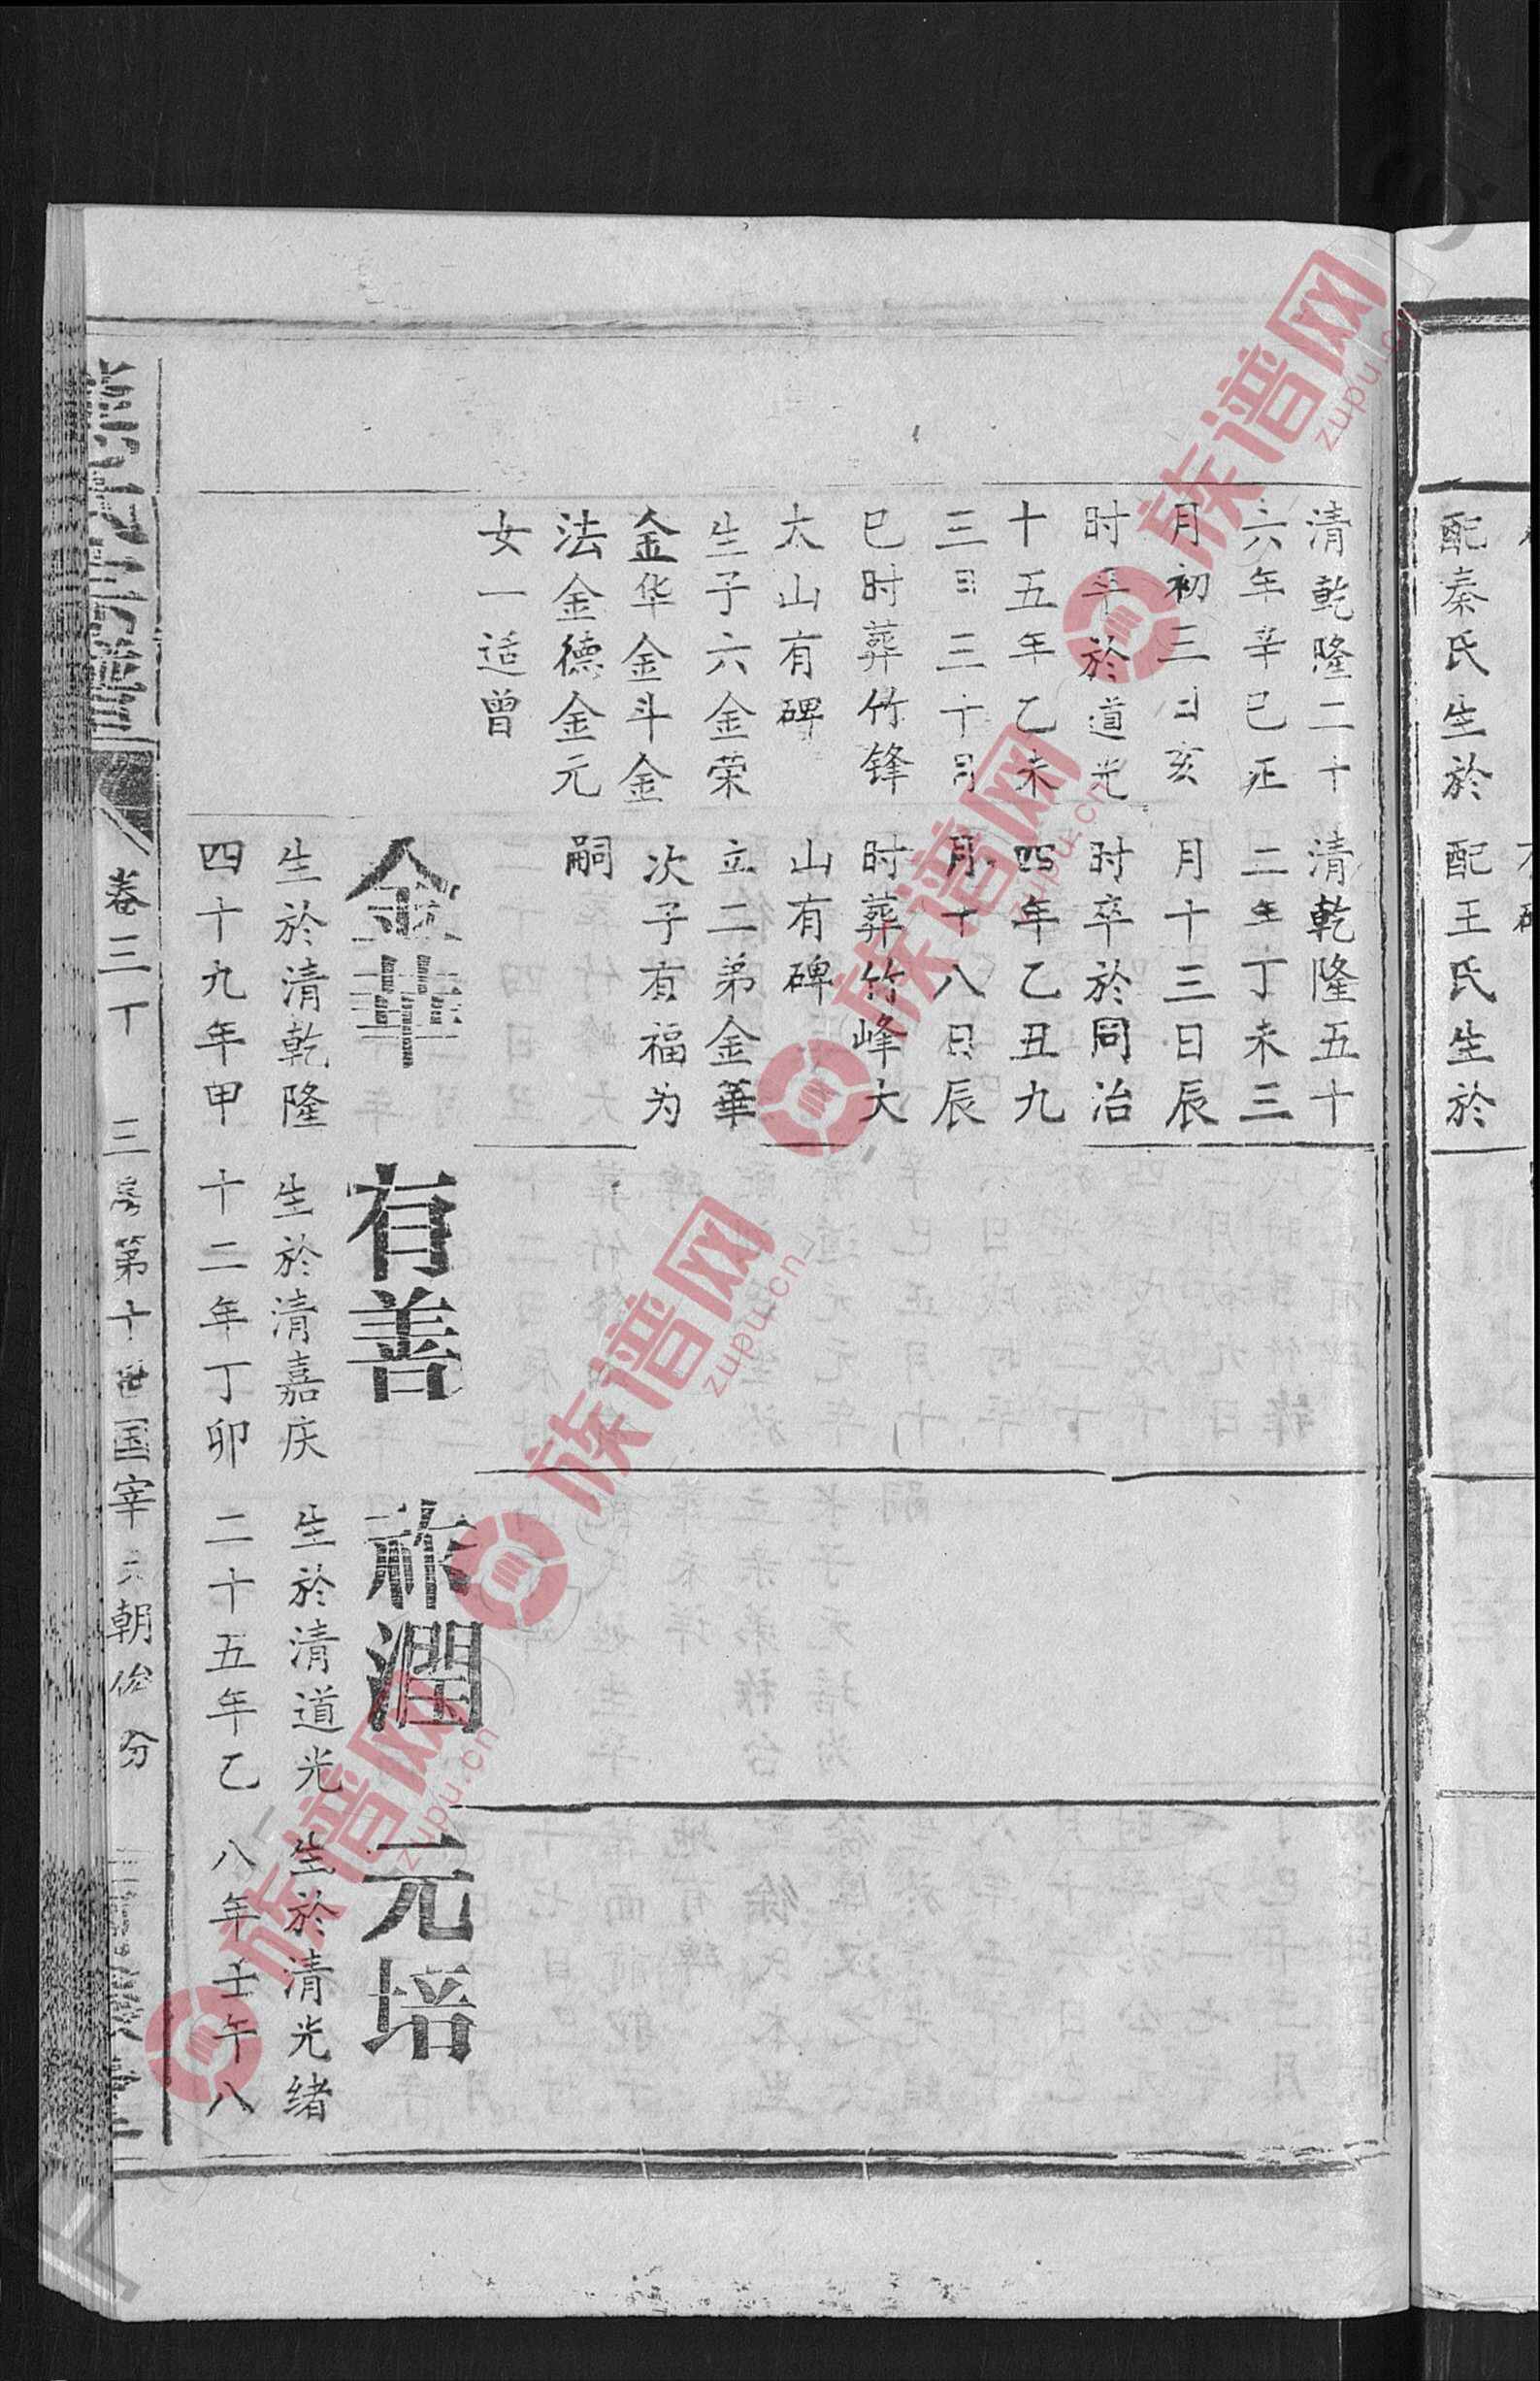 配秦氏生於
配王氏生於
清乾隆二十
六年辛巳正
月初三日亥
时卒於道光
十五年乙未
三月三十日
巳时葬竹锋
太山有碑
生子六金荣
金华金斗金
法金德金元
女一适曾
清乾隆五十
二年丁未三
月十三日辰
时卒於同治
四年乙丑九
月十八日辰
时葬竹峰大
山有碑
立二弟金華
次子有福为
嗣
金華
生於清乾隆
四十九年甲
有善
生於清嘉庆
十二年丁卯
祚潤
生於清道光
二十五年乙
元培
生於清光绪
八年壬午八
卷三丁
三房第十世国宰 朝俊分
族谱网
zupu.cn
族谱网
zupu.cn
族谱网
zupu.cn
族谱网
zupu.cn